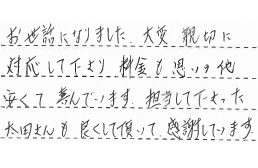 お世話になりました。大変 親切に
対応して下さり 料金も思いの他
安くて 喜んでいます。担当して下さった
太田さんも 良くして頂いて 感謝しています。